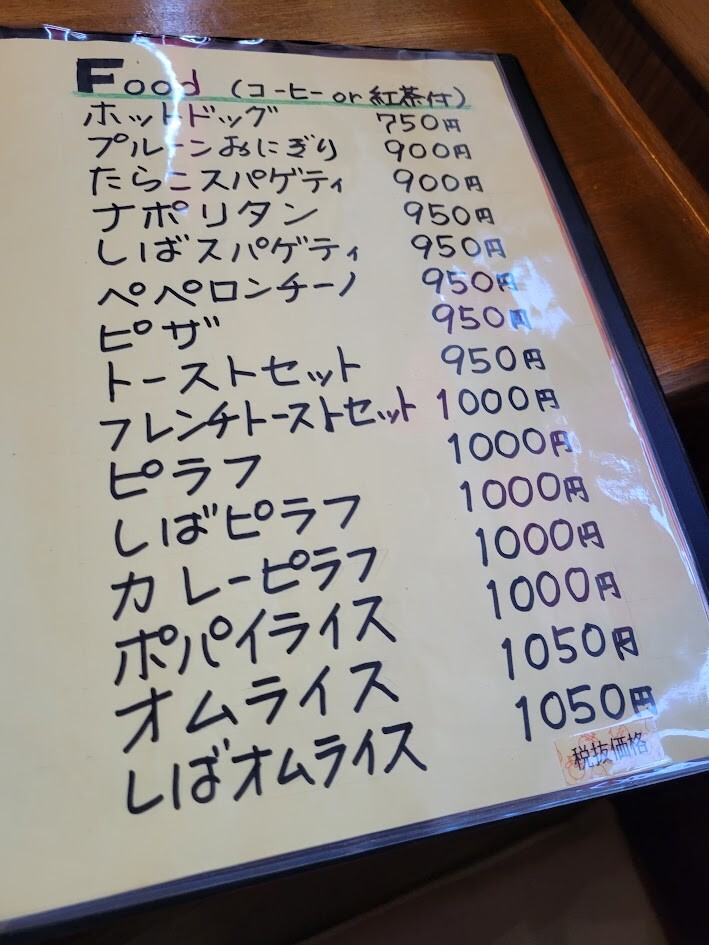 Food (コーヒー or 紅茶付)
ホットドッグ 750円
プルーンおにぎり 900円
たらこスパゲティ 900円
ナポリタン 950円
しばスパゲティ 950円
ペペロンチーノ 950円
ピザ 950円
トーストセット 950円
フレンチトーストセット 1000円
ピラフ 1000円
しばピラフ 1000円
カレーピラフ 1000円
ポパイライス 1000円
オムライス 1050円
しばオムライス 1050円
税抜価格